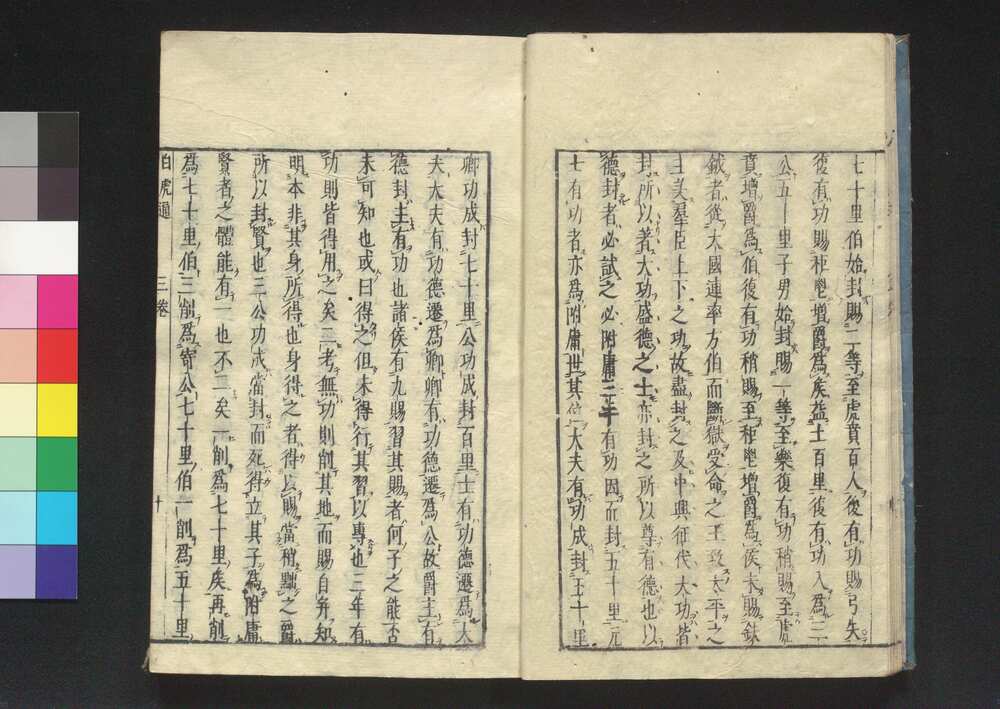 七十里伯始封賜二等至虎賁百人後有功賜弓矢
復有功賜秬鬯增爵爲矦益土百里後有功入爲三
公五十里子男始封賜一等至樂復有功稍賜至虎
賁增爵爲伯復有功稍賜至秬鬯增爵爲侯未賜鈇
鉞者從大國連率方伯而斷獄受命之王致太平之
主美羣臣上下之功故盡封之及中興征伐大功皆
封所以著大功盛德之士亦封之所以尊有德也以
德封者必試之必附庸三年有功因而封五十里元
士有功者亦爲附庸世其位大夫有功成封五十里
卿功成封七十里公功成封百里士有功德遷爲大
夫大夫有功德遷爲卿卿有功德遷爲公故爵主有
德封主有功也諸侯有九賜習其賜者何子之能否
未可知也或曰得之但未得行其習以專也三年有
功則皆得用之矣二考無功則削其地而賜自并知
明本非其身所得也身得之者得以賜當稍黜之爵
所以封賢也三公功成當封而死得立其子爲附庸
賢者之體能有一也不二矣一削爲七十里矦再削
爲七十里伯三削爲寄公七十里伯一削爲五十里
白虎通 三卷 十